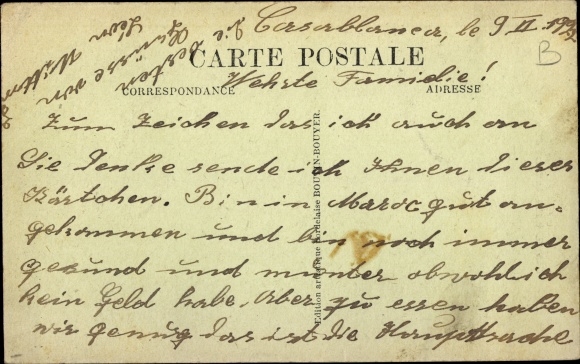 Casablanca, le 9 II.
CARTE POSTALE
CORRESPONDANCE
ADRESSE
Wehrte Familie!
Zum Zeichen das ich auch an
Sie denke sende ich Ihnen dieses
Kärtchen. Bin in Maroc gut an-
gekommen und bin noch immer
gesund und munter obwohl ich
kein Geld habe. Aber zu essen haben
wir genug das ist die Hauptsache
die besten
Grüsse von
Edition artistique Bordelaise BOUYER.